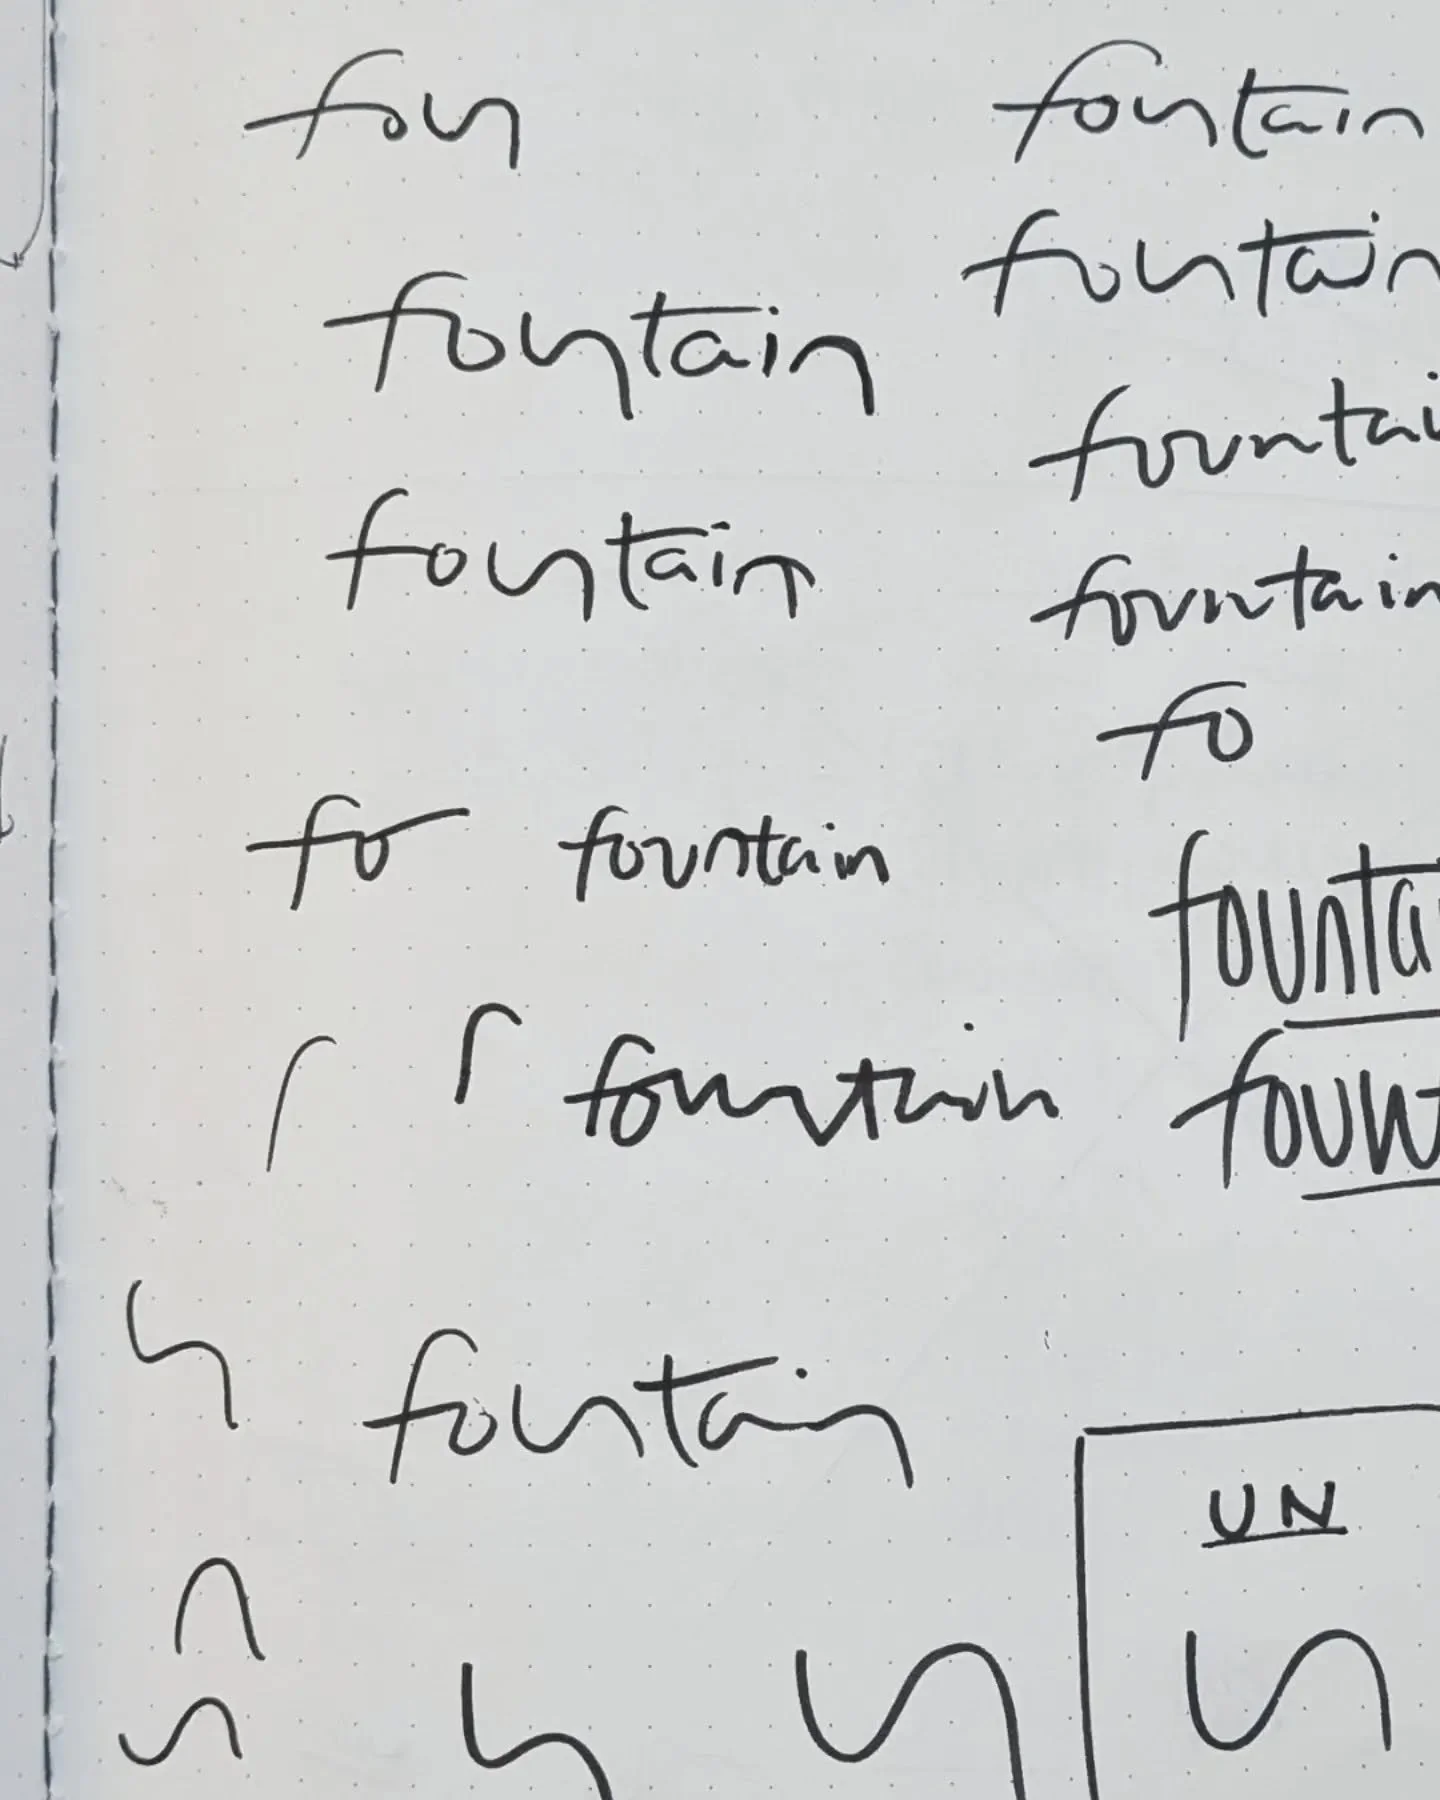 foun fountain
fountain
fountain
fountai
fountain
fountain
fo
fo fountain
founta
fountain
fount
fountain
UN